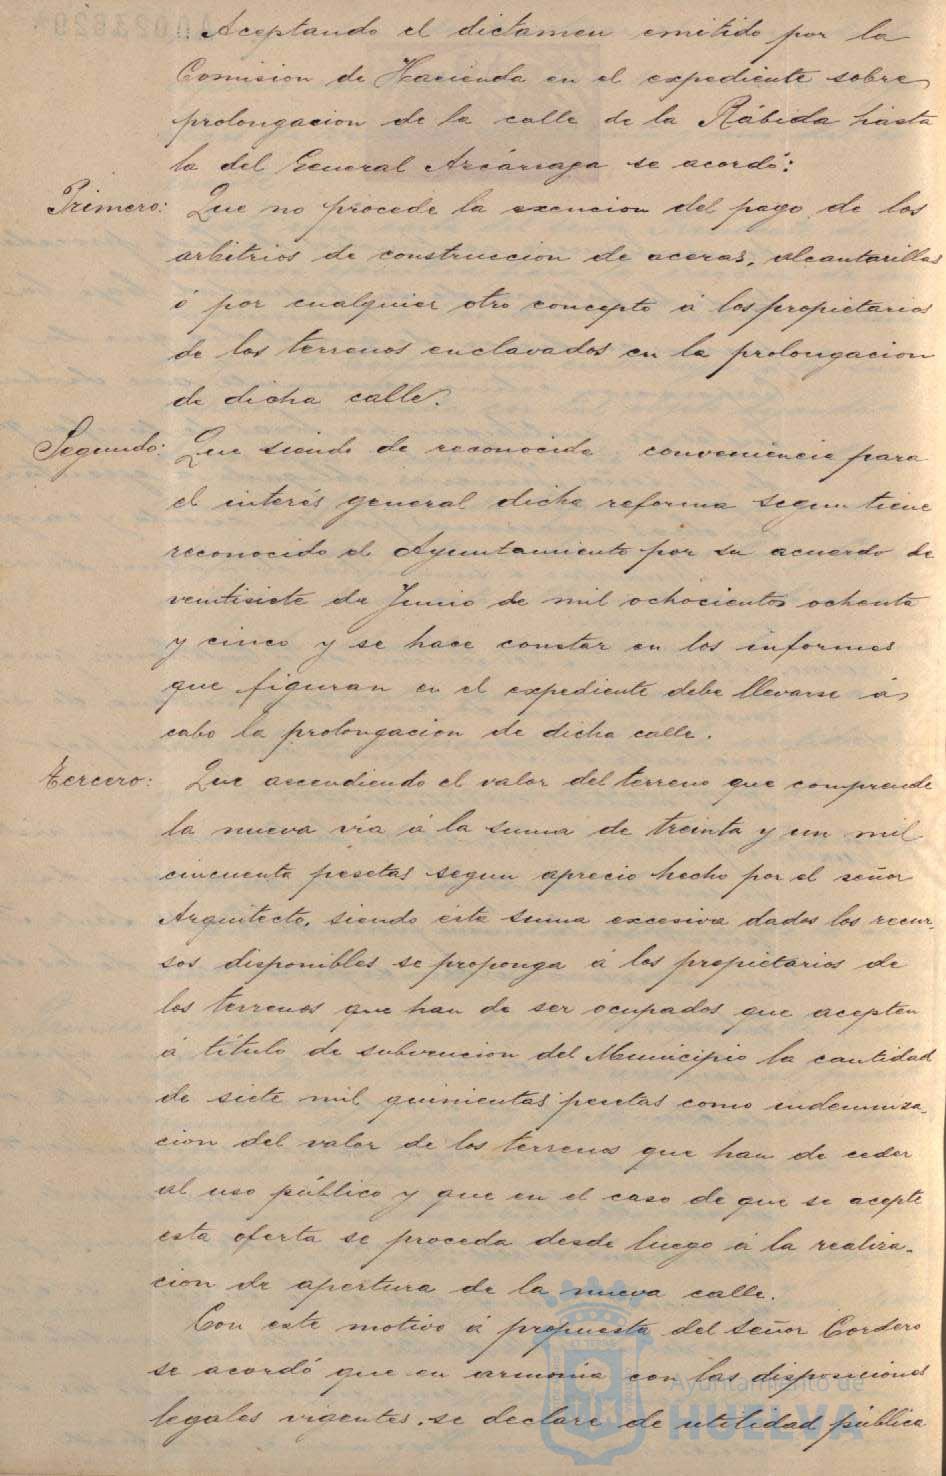 Aceptando el dictamen emitido por la
Comision de Hacienda en el expediente sobre
prolongacion de la calle de la Rábida hasta
la del General Azcárraga se acordó:
Primero: Que no procede la exencion del pago de los
arbitrios de construccion de aceras, alcantarillas
ó por cualquier otro concepto á los propietarios
de los terrenos enclavados en la prolongacion
de dicha calle.
Segundo: Que siendo de reconocida conveniencia para
el interés general dicha reforma segun tiene
reconocido el Ayuntamiento por su acuerdo de
veintisiete de Junio de mil ochocientos ochenta
y cinco y se hace constar en los informes
que figuran en el expediente debe llevarse á
cabo la prolongacion de dicha calle.
Tercero: Que ascendiendo el valor del terreno que comprende
la nueva via á la suma de treinta y un mil
cincuenta pesetas segun aprecio hecho por el señor
Arquitecto, siendo esta suma excesiva dados los recur-
sos disponibles se proponga á los propietarios de
los terrenos que han de ser ocupados que acepten
á título de subvencion del Municipio la cantidad
de siete mil quinientas pesetas como indemniza-
cion del valor de los terrenos que han de ceder
al uso público y que en el caso de que se acepte
esta oferta se proceda desde luego á la realiza-
cion de apertura de la nueva calle.
Con este motivo á propuesta del señor Cordero
se acordó que en armonia con las disposiciones
legales vigentes, se declare de utilidad pública
Ayuntamiento de
HUELVA